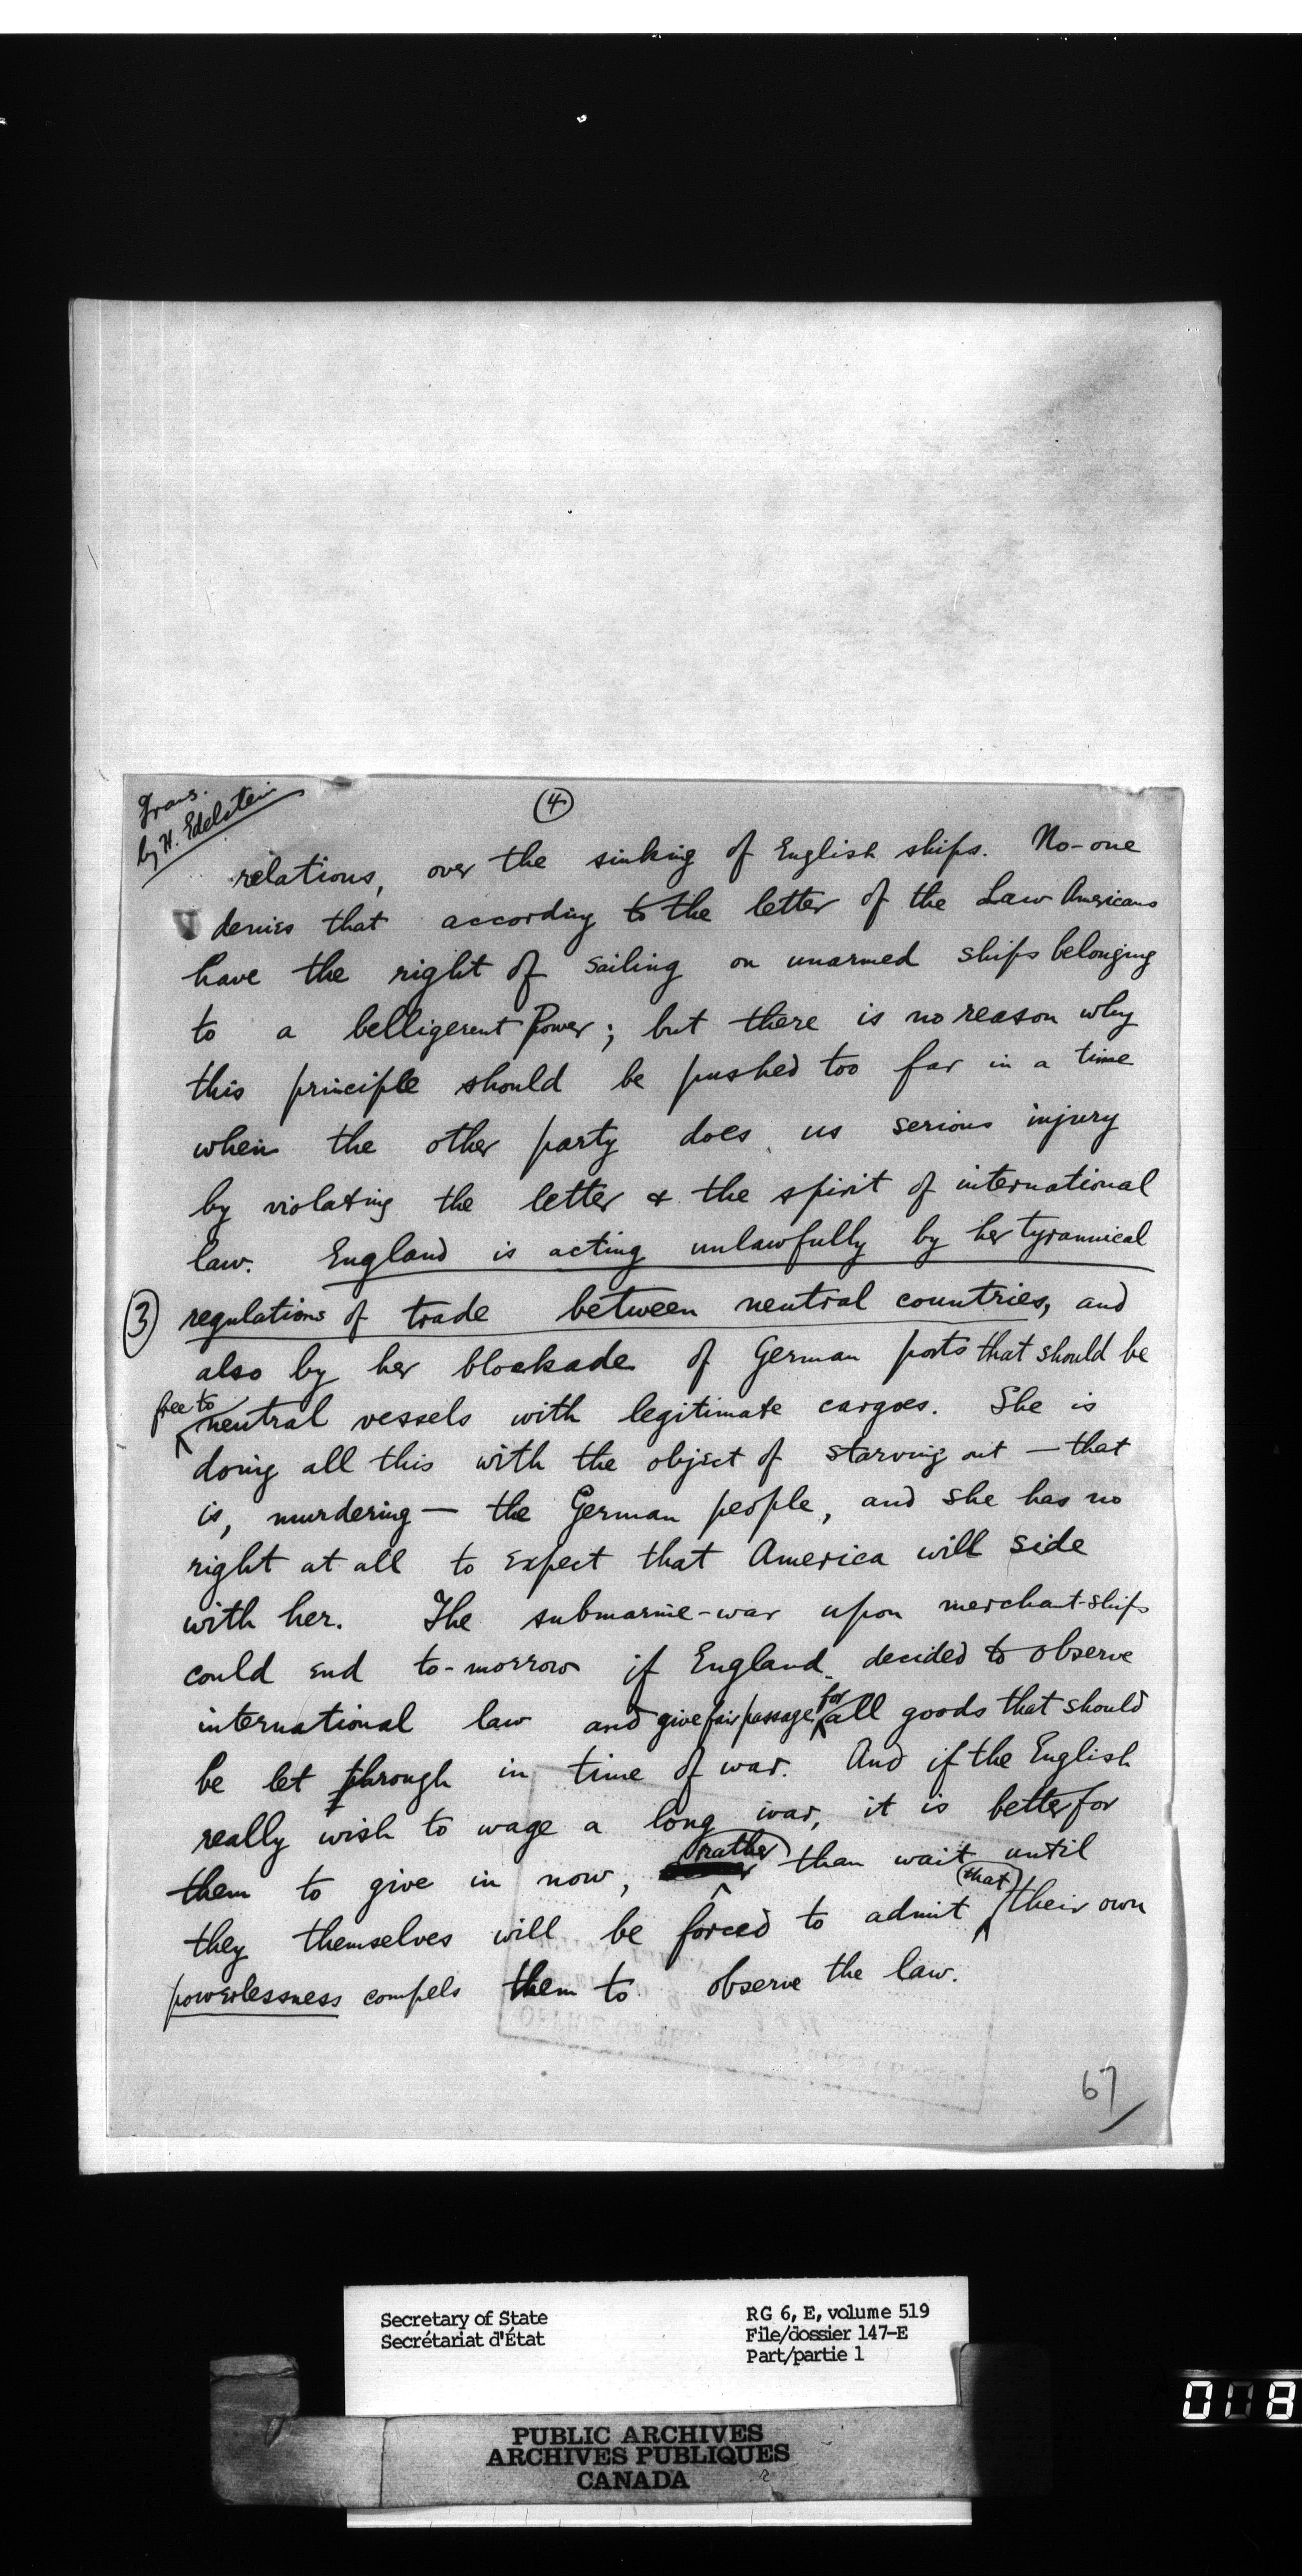 Trans.
by H. Edelstein
4
relations, over the sinking of English ships. No-one
denies that according to the letter of the Law Americans
have the right of sailing on unarmed ships belonging
to a belligerent Power; but there is no reason why
this principle should be pushed too far in a time
when the other party does us serious injury
by violating the letter & the spirit of international
law. England is acting unlawfully by her tyrannical
3 regulations of trade between neutral countries, and
also by her blockade of German ports that should be
free to neutral vessels with legitimate cargoes. She is
doing all this with the object of starving out — that
is, murdering — the German people, and she has no
right at all to expect that America will side
with her. The submarine-war upon merchant-ships
could end to-morrow if England decided to observe
international law and give fair passage for all goods that should
be let through in time of war. And if the English
really wish to wage a long war, it is better for
them to give in now, rather than wait until
they themselves will be forced to admit that their own
powerlessness compels them to observe the law.
67
Secretary of State
Secrétariat d'État
RG 6, E, volume 519
File/dossier 147-E
Part/partie 1
PUBLIC ARCHIVES
ARCHIVES PUBLIQUES
CANADA